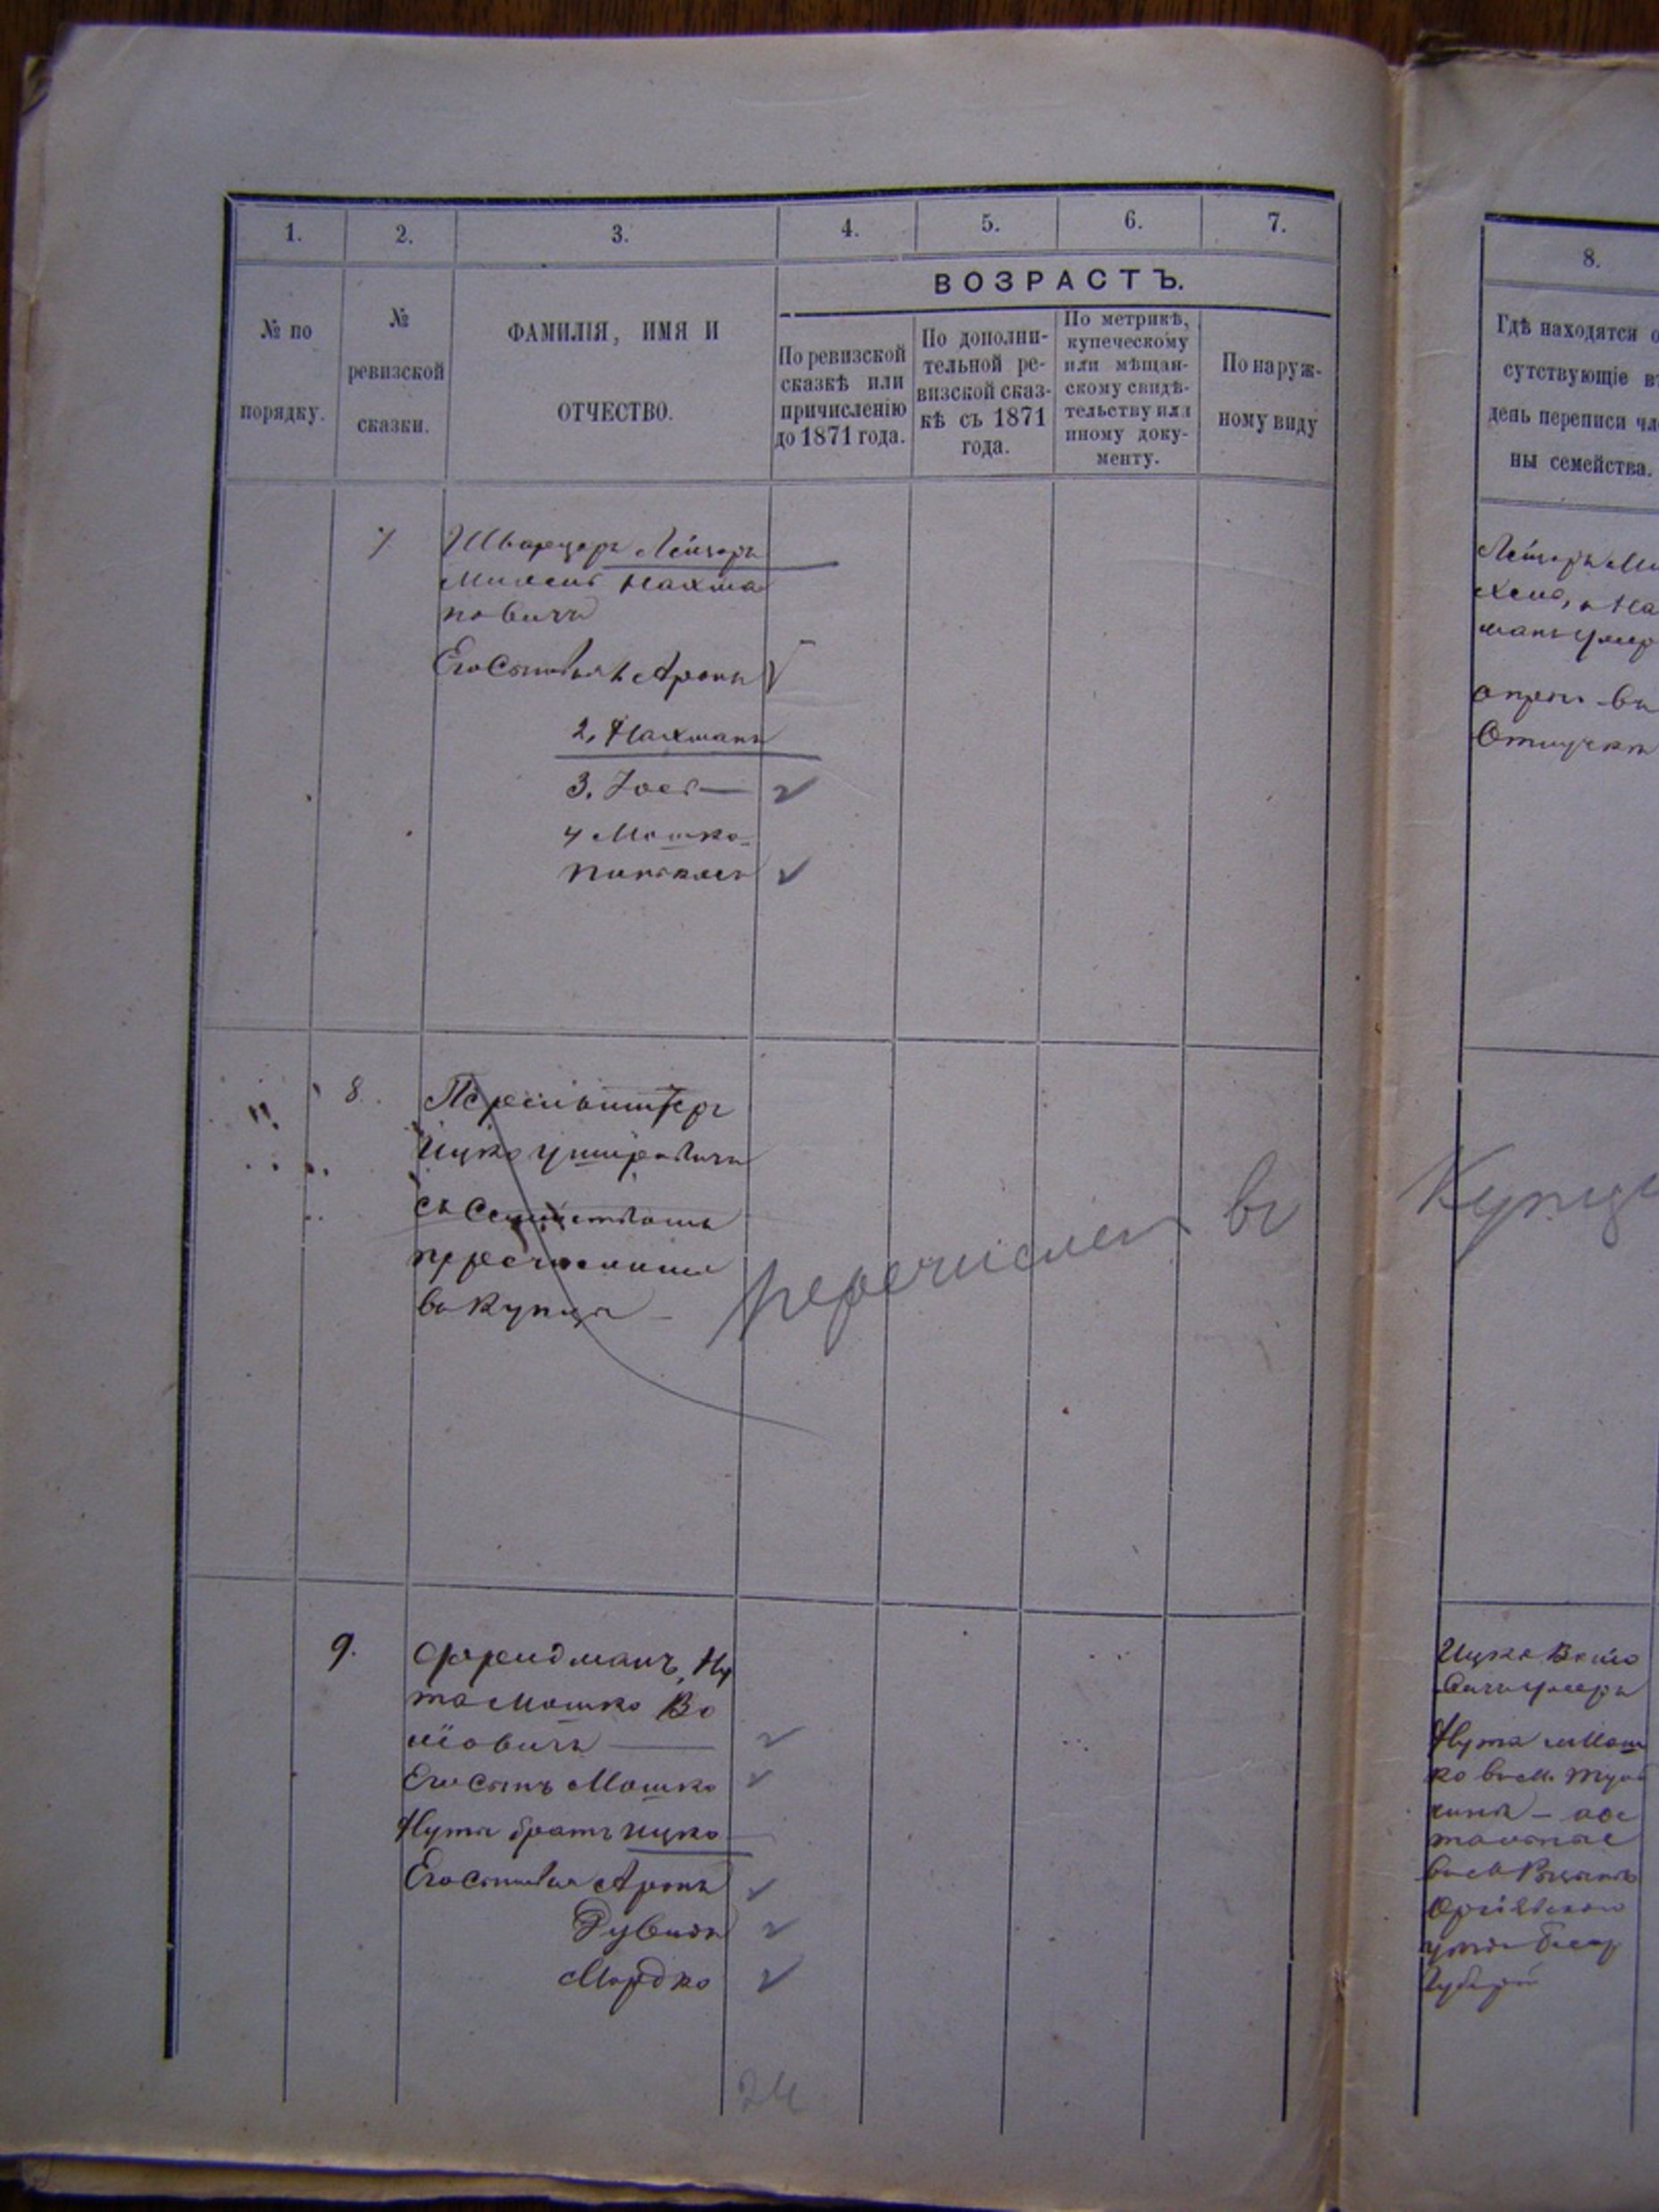 1.
2.
3.
4.
5.
6.
7.
ВОЗРАСТЪ.
№ по
порядку.
№
ревизской
сказки.
ФАМИЛІЯ, ИМЯ И
ОТЧЕСТВО.
По ревизской
сказкѣ или
причисленію
до 1871 года.
По дополни-
тельной ре-
визской сказ-
кѣ съ 1871
года.
По метрикѣ,
купеческому
или мѣщан-
скому свидѣ-
тельству или
иному доку-
менту.
По наруж-
ному виду
7 Шварцеръ Лейзоръ
Михель Нахма
новичъ
Его Сыновья 1 Аронъ
2, Нахманъ
3. Іось
4 Мошко
Пинхасъ
8.
Ицко
съ Семействомъ
перечислены
въ Купцы
перечисленъ въ
9. Фрейдманъ, Ну
та Мошко Во
левичъ
Его Сынъ Мошко
Нута братъ Ицко
Его Сыновья Аронъ
Рувинъ
Мордко
24
8.
Гдѣ находятся о
сутствующіе въ
день переписи чле
ны семейства.
Лейзоръ Ми
хель, и На
манъ умер
Аронъ въ
Отлучкѣ
Купцы
Ицко
умеръ
Нута и Мош
ко въ м.
Оргѣевскаго
уѣзда Бесар
Губерніи